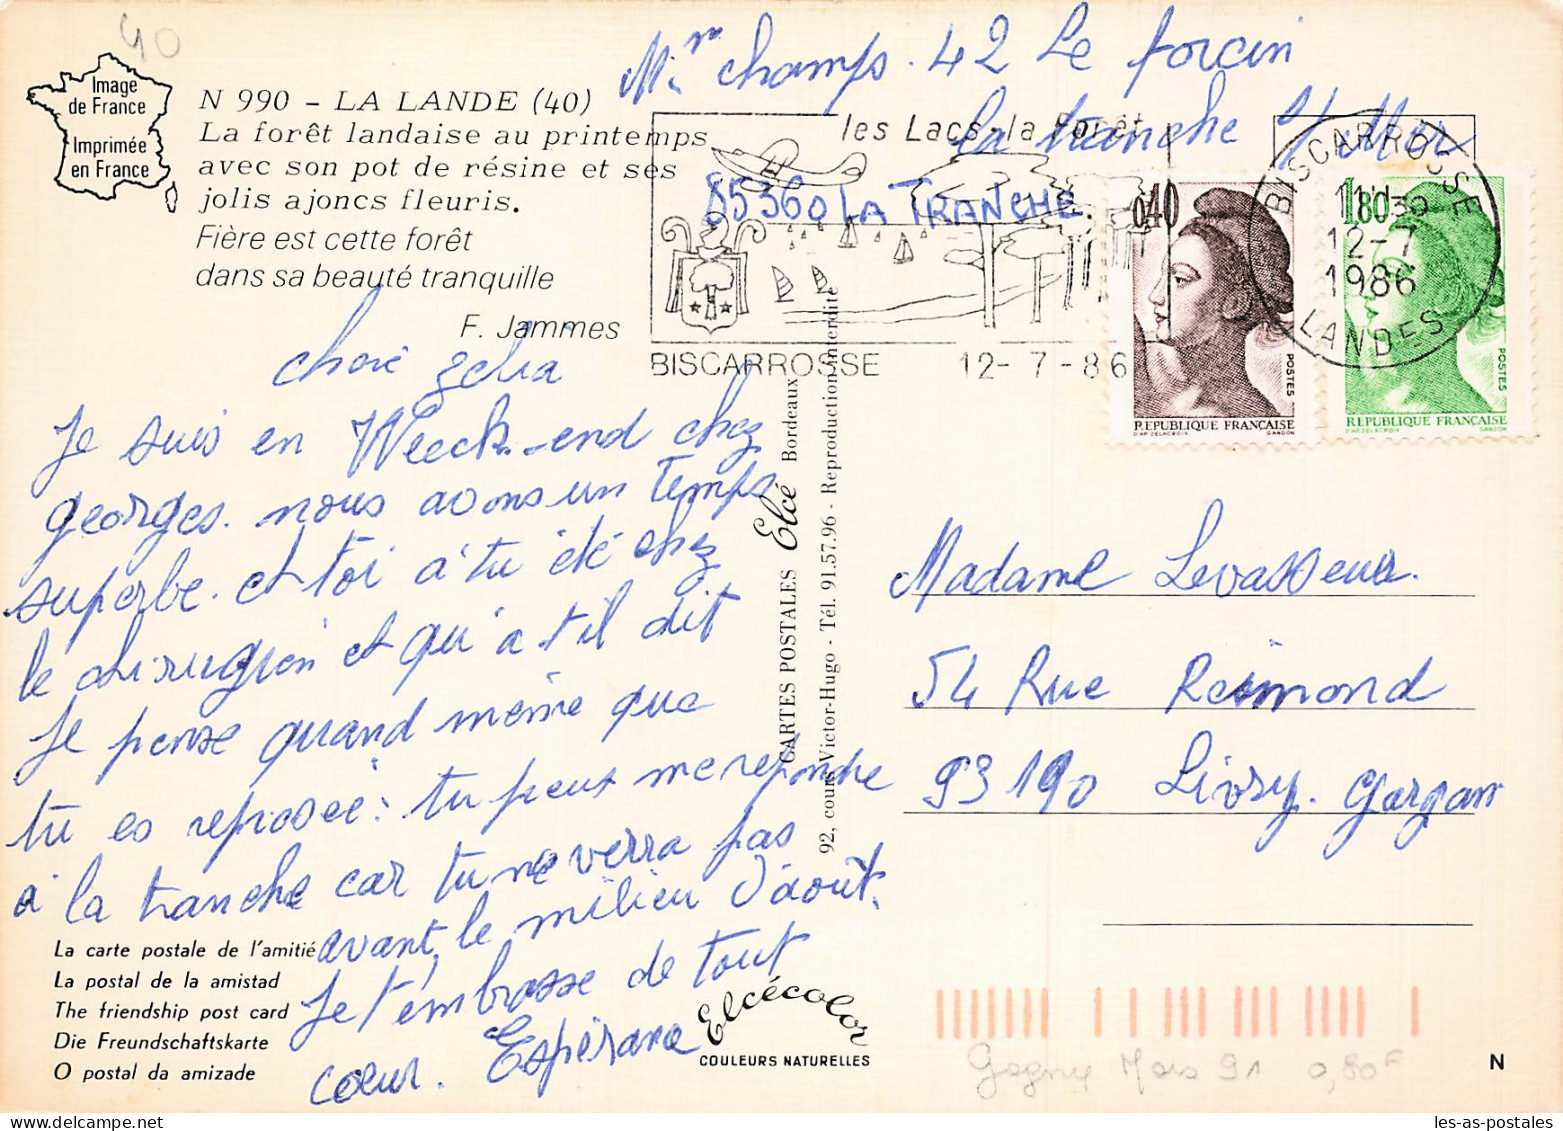 40
Image
de France
Imprimée
en France
N 990 - LA LANDE (40)
La forêt landaise au printemps
avec son pot de résine et ses
jolis ajoncs fleuris.
Fière est cette forêt
dans sa beauté tranquille
F. Jammes
Mr champs. 42 Le forcin
la tranche S/ Mer
85360 LA TRANCHE
les Lacs-la Forêt
BISCARROSSE 12-7-86
BISCARROSSE
12-7
1986
LANDES
0,40
POSTES
REPUBLIQUE FRANÇAISE
D'AP. DELACROIX GANDON
1,80
POSTES
REPUBLIQUE FRANÇAISE
D'AP. DELACROIX GANDON
chere zelia
Je suis en Weeck-end chez
georges. nous avons un temps
superbe. et toi a tu été chez
le chirugien et qu'a t'il dit
Je pense quand même que
tu es reposée: tu peux me repondre
a la tranche car tu ne verra pas
avant le milieu d'août.
Je t'embrasse de tout
coeur. Espérance
CARTES POSTALES Elcé Bordeaux
92, cours Victor-Hugo - Tél. 91.57.96 - Reproduction interdite
Madame Levasseur.
54 Rue Reimond
93190 Livry. Gargan
La carte postale de l'amitié
La postal de la amistad
The friendship post card
Die Freundschaftskarte
O postal da amizade
Elcécolor
COULEURS NATURELLES
Gagny Mars 91 0,80F
N
les-as-postales